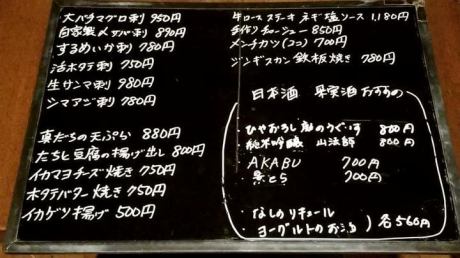 大バチマグロ刺 950円
自家製〆サバ刺 890円
するめいか刺 780円
活ホタテ刺 750円
生サンマ刺 980円
シマアジ刺 780円
真だちの天ぷら 880円
たちと豆腐の揚げ出し 800円
イカマヨチーズ焼き 750円
ホタテバター焼き 750円
イカゲソ揚げ 500円
牛ロースステーキ ネギ塩ソース 1,180円
手作りチャーシュー 850円
メンチカツ(2コ) 700円
ジンギスカン鉄板焼き 780円
日本酒 果実酒おすすめ
ひやおろし 庭のうぐいす 800円
純米吟醸 山法師 800円
AKABU 700円
700円
・なしのリキュール
・ヨーグルトのお酒 ) 各560円